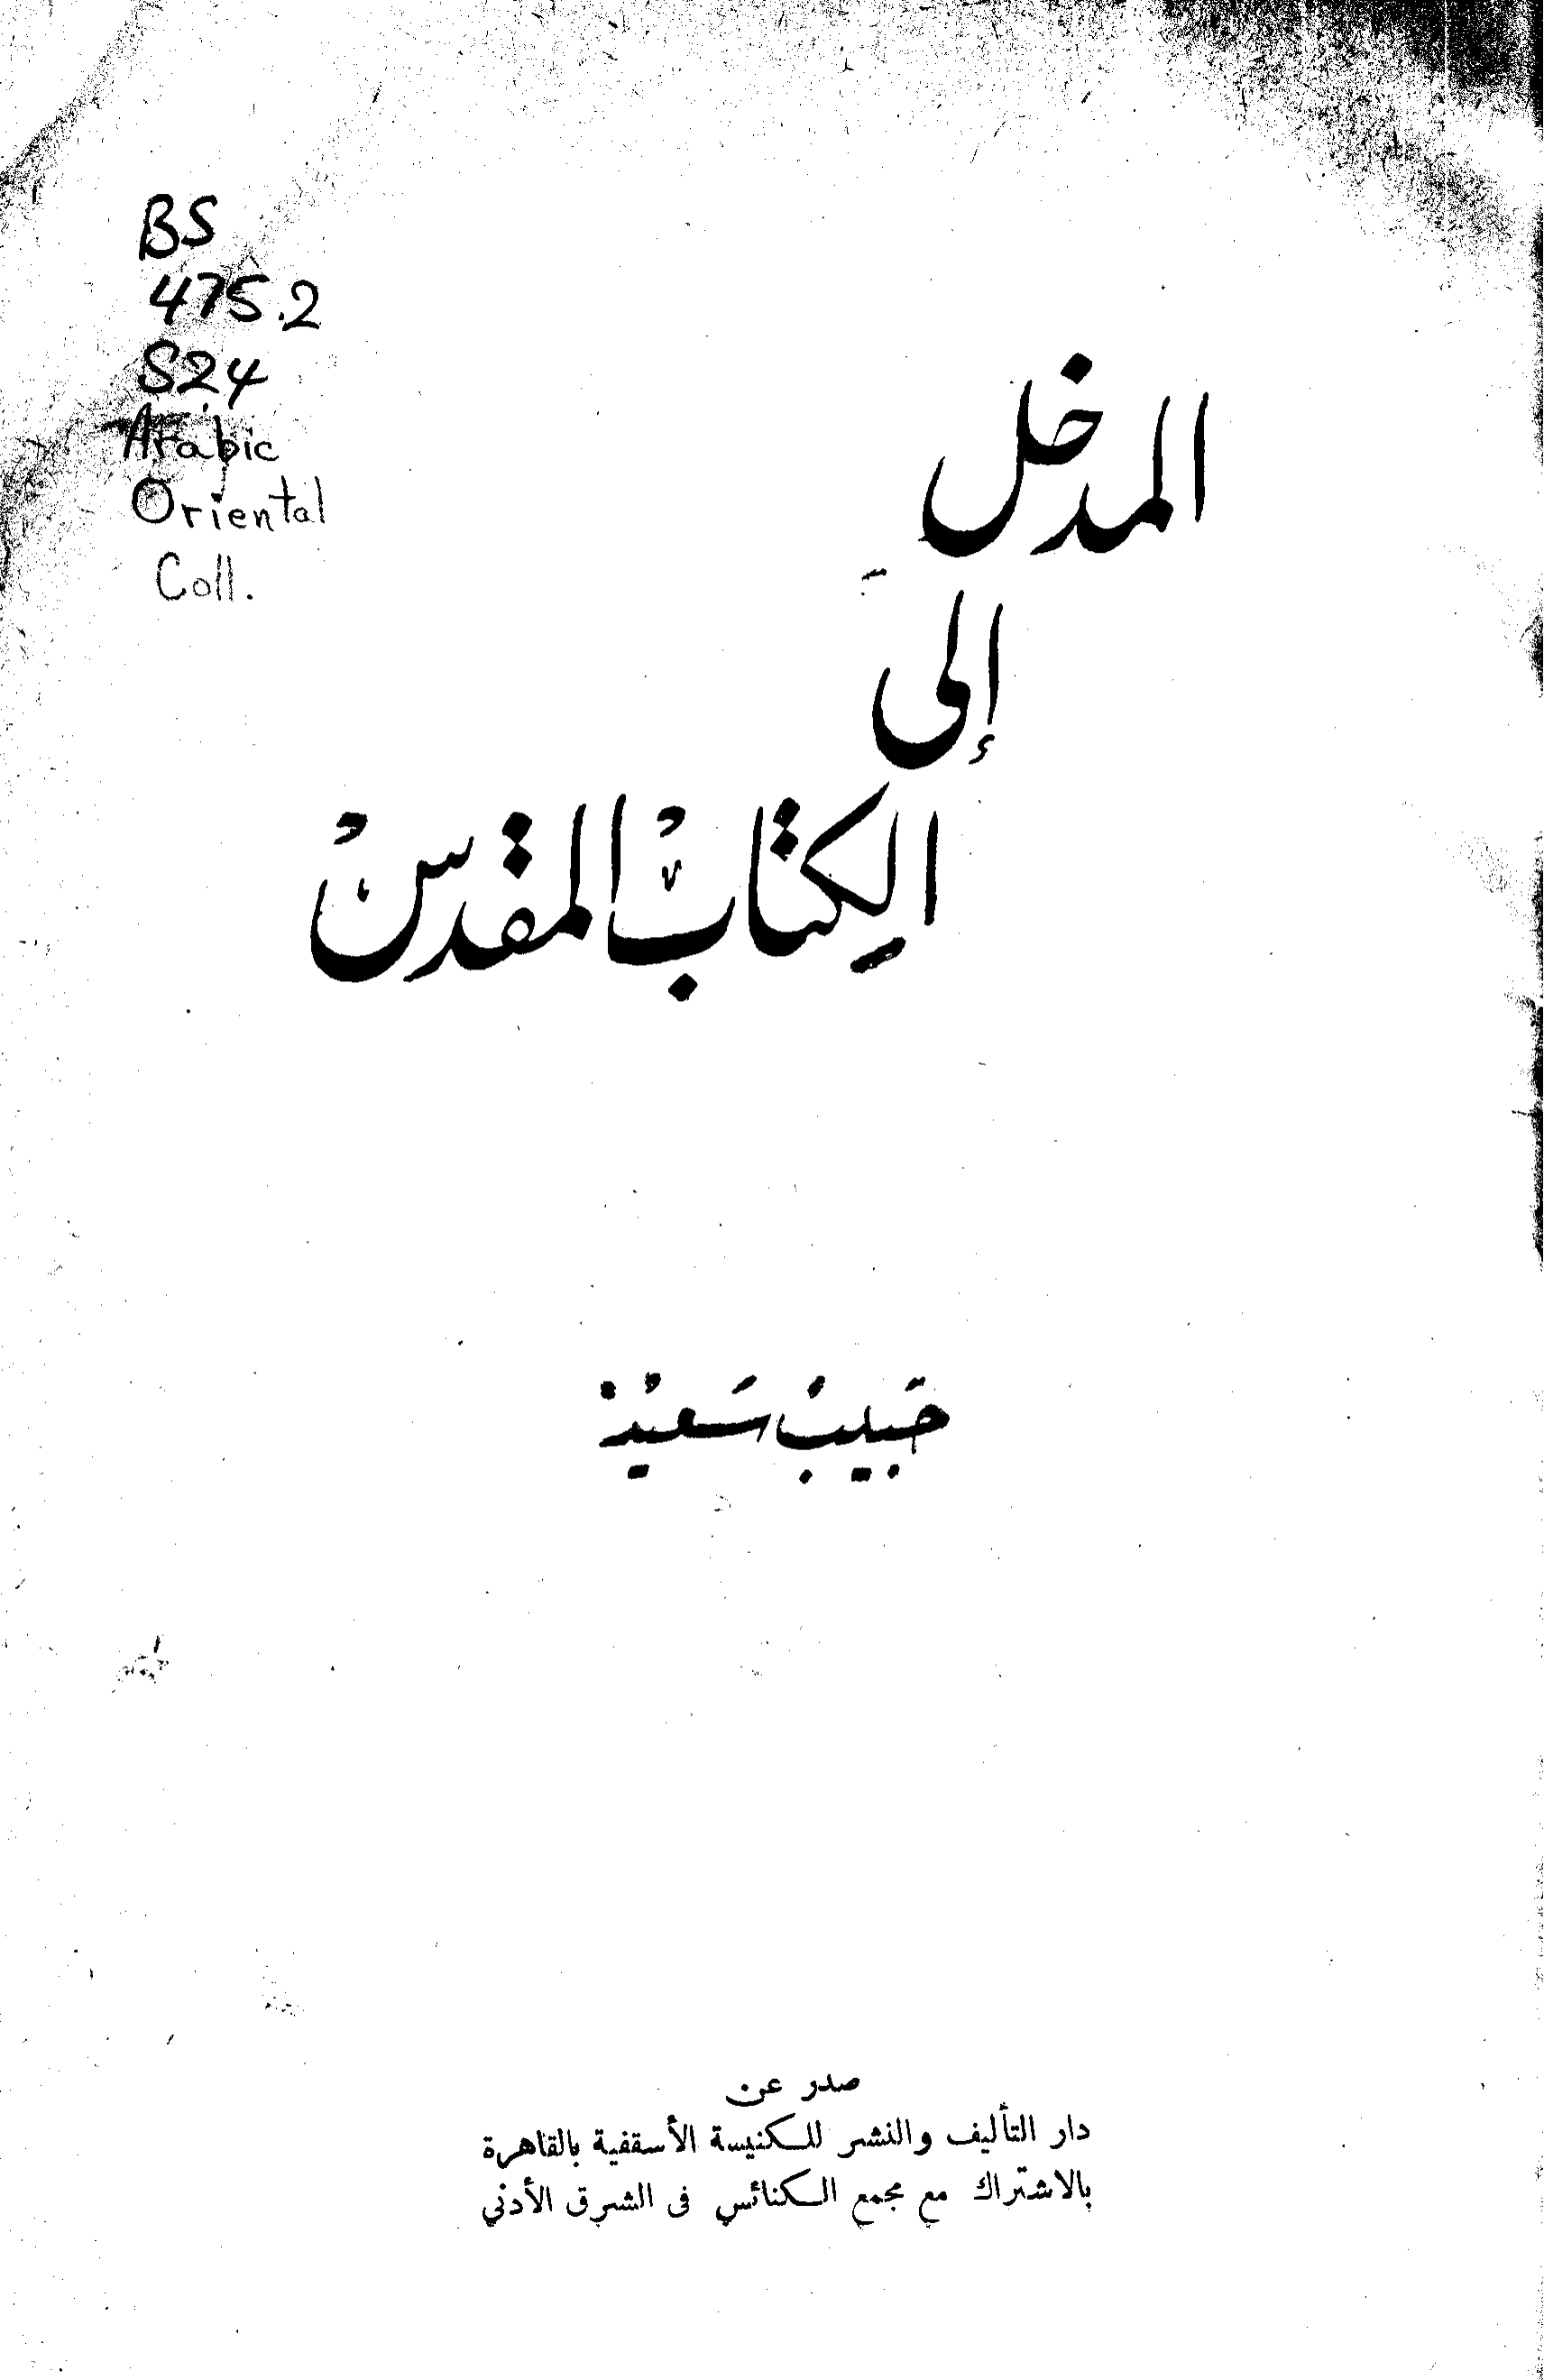 BS
475.2
S24
Arabic
Oriental
Coll.
المدخل
إلى
الكتاب المقدس
حبيب سعيد
صدر عن
دار التأليف والنشر للكنيسة الأسقفية بالقاهرة
بالاشتراك مع مجمع الكنائس فى الشرق الأدنى